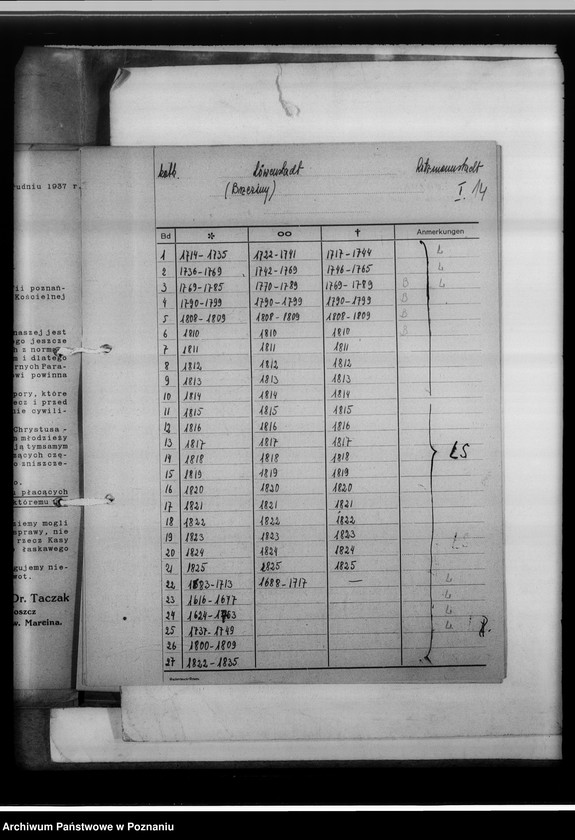 rudniu 1937 r.
ii poznań-
Kościelnej
naszej jest
go jeszcze
h z normą
m i dlatego
rnych Para-
wi powinna
pory, które
ecz i przed
ie cywili-
Chrystusa -
a młodzieży
ją tymsamym
zących czę-
o zniszcze-
o.
i płacących
któremu
ziemy mogli
sprawy, nie
rzecz Kasy
łaskawego
gujemy nie-
wot.
Dr. Taczak
oszcz
w. Marcina.
kath. Löwenstadt Litzmannstadt
(Brzeziny) I. 14
Bd * ∞ † Anmerkungen
1 1714-1735 1722-1741 1717-1744 L
2 1736-1769 1742-1769 1746-1765 L
3 1769-1785 1770-1789 1769-1789 B L
4 1790-1799 1790-1799 1790-1799 B
5 1808-1809 1808-1809 1808-1809 B
6 1810 1810 1810 B
7 1811 1811 1811
8 1812 1812 1812
9 1813 1813 1813
10 1814 1814 1814
11 1815 1815 1815
12 1816 1816 1816
13 1817 1817 1817
14 1818 1818 1818 LS
15 1819 1819 1819
16 1820 1820 1820
17 1821 1821 1821
18 1822 1822 1822
19 1823 1823 1823
20 1824 1824 1824
21 1825 1825 1825
22 1683-1713 1688-1717 — L
23 1616-1677 L
24 1624-1763 L
25 1737-1749 L
26 1800-1809
27 1822-1835
Archiwum Państwowe w Poznaniu